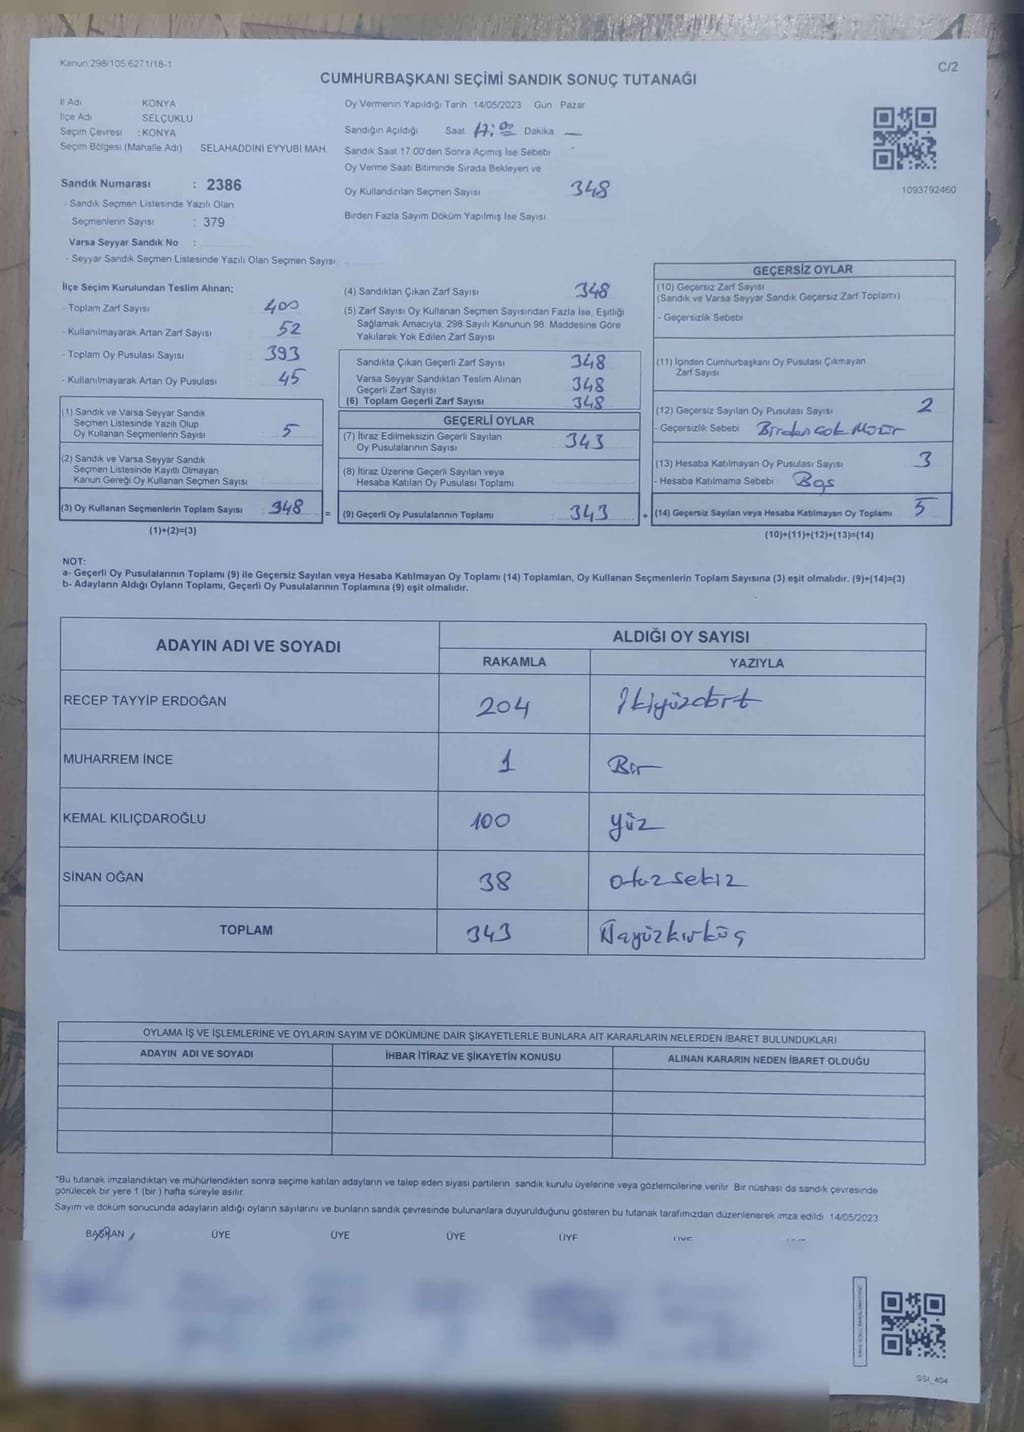 Kanun:298/105.6271/18-1
C/2
CUMHURBAŞKANI SEÇİMİ SANDIK SONUÇ TUTANAĞI
İl Adı KONYA
İlçe Adı SELÇUKLU
Seçim Çevresi : KONYA
Seçim Bölgesi (Mahalle Adı) SELAHADDİNİ EYYUBİ MAH.
Sandık Numarası : 2386
- Sandık Seçmen Listesinde Yazılı Olan
Seçmenlerin Sayısı : 379
Varsa Seyyar Sandık No :
- Seyyar Sandık Seçmen Listesinde Yazılı Olan Seçmen Sayısı
Oy Vermenin Yapıldığı Tarih 14/05/2023 Gün Pazar
Sandığın Açıldığı Saat 17:00 Dakika —
Sandık Saat 17:00'den Sonra Açımış İse Sebebi
Oy Verme Saati Bitiminde Sırada Bekleyen ve
Oy Kullandırılan Seçmen Sayısı 348
Birden Fazla Sayım Döküm Yapılmış İse Sayısı
1093792460
İlçe Seçim Kurulundan Teslim Alınan;
- Toplam Zarf Sayısı 400
- Kullanılmayarak Artan Zarf Sayısı 52
- Toplam Oy Pusulası Sayısı 393
- Kullanılmayarak Artan Oy Pusulası 45
(1) Sandık ve Varsa Seyyar Sandık
Seçmen Listesinde Yazılı Olup
Oy Kullanan Seçmenlerin Sayısı 5
(2) Sandık ve Varsa Seyyar Sandık
Seçmen Listesinde Kayıtlı Olmayan
Kanun Gereği Oy Kullanan Seçmen Sayısı
(3) Oy Kullanan Seçmenlerin Toplam Sayısı 348
(1)+(2)=(3)
(4) Sandıktan Çıkan Zarf Sayısı 348
(5) Zarf Sayısı Oy Kullanan Seçmen Sayısından Fazla İse, Eşitliği
Sağlamak Amacıyla, 298 Sayılı Kanunun 98. Maddesine Göre
Yakılarak Yok Edilen Zarf Sayısı
Sandıkta Çıkan Geçerli Zarf Sayısı 348
Varsa Seyyar Sandıktan Teslim Alınan
Geçerli Zarf Sayısı 348
(6) Toplam Geçerli Zarf Sayısı 348
GEÇERLİ OYLAR
(7) İtiraz Edilmeksizin Geçerli Sayılan
Oy Pusulalarının Sayısı 343
(8) İtiraz Üzerine Geçerli Sayılan veya
Hesaba Katılan Oy Pusulası Toplamı
= (9) Geçerli Oy Pusulalarının Toplamı : 343
GEÇERSİZ OYLAR
(10) Geçersiz Zarf Sayısı
(Sandık ve Varsa Seyyar Sandık Geçersiz Zarf Toplamı)
- Geçersizlik Sebebi
(11) İçinden Cumhurbaşkanı Oy Pusulası Çıkmayan
Zarf Sayısı
(12) Geçersiz Sayılan Oy Pusulası Sayısı 2
- Geçersizlik Sebebi Birden çok Mühür
(13) Hesaba Katılmayan Oy Pusulası Sayısı 3
- Hesaba Katılmama Sebebi Boş
+ (14) Geçersiz Sayılan veya Hesaba Katılmayan Oy Toplamı 5
(10)+(11)+(12)+(13)=(14)
NOT:
a- Geçerli Oy Pusulalarının Toplamı (9) ile Geçersiz Sayılan veya Hesaba Katılmayan Oy Toplamı (14) Toplamları, Oy Kullanan Seçmenlerin Toplam Sayısına (3) eşit olmalıdır. (9)+(14)=(3)
b- Adayların Aldığı Oyların Toplamı, Geçerli Oy Pusulalarının Toplamına (9) eşit olmalıdır.
ADAYIN ADI VE SOYADI ALDIĞI OY SAYISI
RAKAMLA YAZIYLA
RECEP TAYYİP ERDOĞAN 204 İkiyüzdört
MUHARREM İNCE 1 Bir
KEMAL KILIÇDAROĞLU 100 yüz
SİNAN OĞAN 38 otuzsekiz
TOPLAM 343 Üçyüzkırküç
OYLAMA İŞ VE İŞLEMLERİNE VE OYLARIN SAYIM VE DÖKÜMÜNE DAİR ŞİKAYETLERLE BUNLARA AİT KARARLARIN NELERDEN İBARET BULUNDUKLARI
ADAYIN ADI VE SOYADI İHBAR İTİRAZ VE ŞİKAYETİN KONUSU ALINAN KARARIN NEDEN İBARET OLDUĞU
*Bu tutanak imzalandıktan ve mühürlendikten sonra seçime katılan adayların ve talep eden siyasi partilerin sandık kurulu üyelerine veya gözlemcilerine verilir Bir nüshası da sandık çevresinde
görülecek bir yere 1 (bir ) hafta süreyle asılır
Sayım ve döküm sonucunda adayların aldığı oyların sayılarını ve bunların sandık çevresinde bulunanlara duyurulduğunu gösteren bu tutanak tarafımızdan düzenlenerek imza edildi. 14/05/2023
BAŞKAN ÜYE ÜYE ÜYE ÜYE
SSI_404